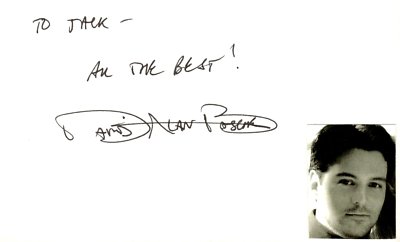 TO JACK —
ALL THE BEST!
DAVID ALAN BASCHE